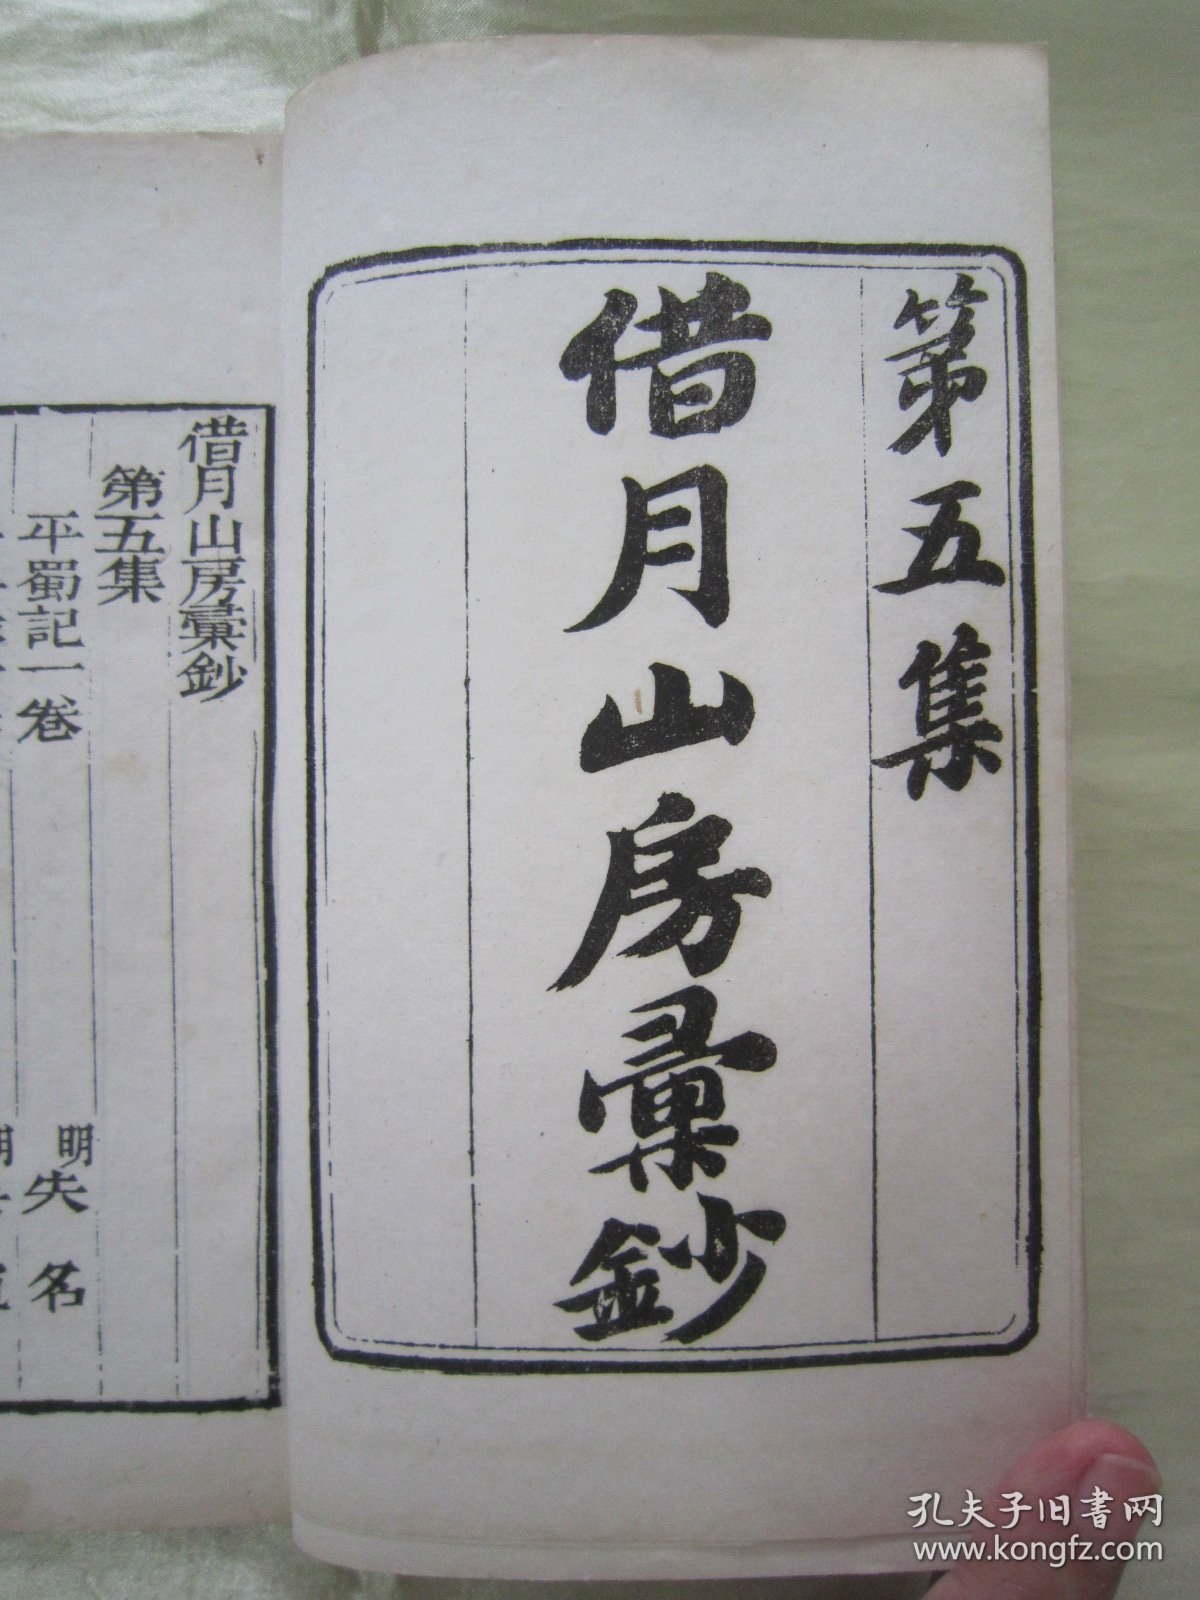 第五集
借月山房彙鈔
借月山房彙鈔
第五集
平蜀記一卷
明失名
孔夫子旧书网
www.kongfz.com